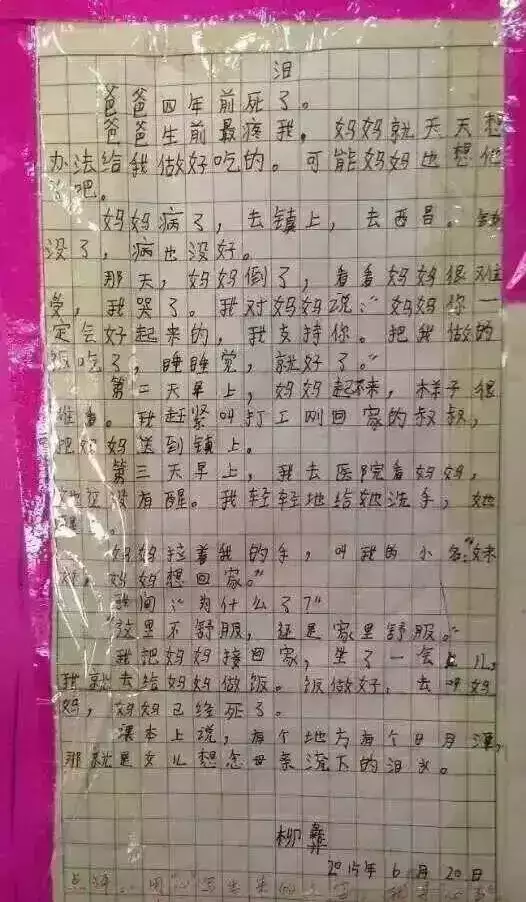 泪
爸爸四年前死了。
爸爸生前最疼我，妈妈就天天想
办法给我做好吃的。可能妈妈也想他
了吧。
妈妈病了，去镇上，去西昌。钱
没了，病也没好。
那天，妈妈倒了，看着妈妈很难
受，我哭了。我对妈妈说：“妈妈你一
定会好起来的，我支持你。把我做的
饭吃了，睡睡觉，就好了。”
第二天早上，妈妈起不来，样子很
难看。我赶紧叫打工刚回家的叔叔，
把妈妈送到镇上。
第三天早上，我去医院看妈妈，
她还没有醒。我轻轻地给她洗手，她
醒
妈妈拉着我的手，叫我的小名：“妹
妹，妈妈想回家。”
我问：“为什么了？”
“这里不舒服，还是家里舒服。”
我把妈妈接回家，坐了一会儿，
我就去给妈妈做饭。饭做好，去叫妈
妈，妈妈已经死了。
课本上说，有个地方有个日月潭，
那就是女儿想念母亲流下的泪水。
柳彝
2015年6月20日
点评：用心写出来的